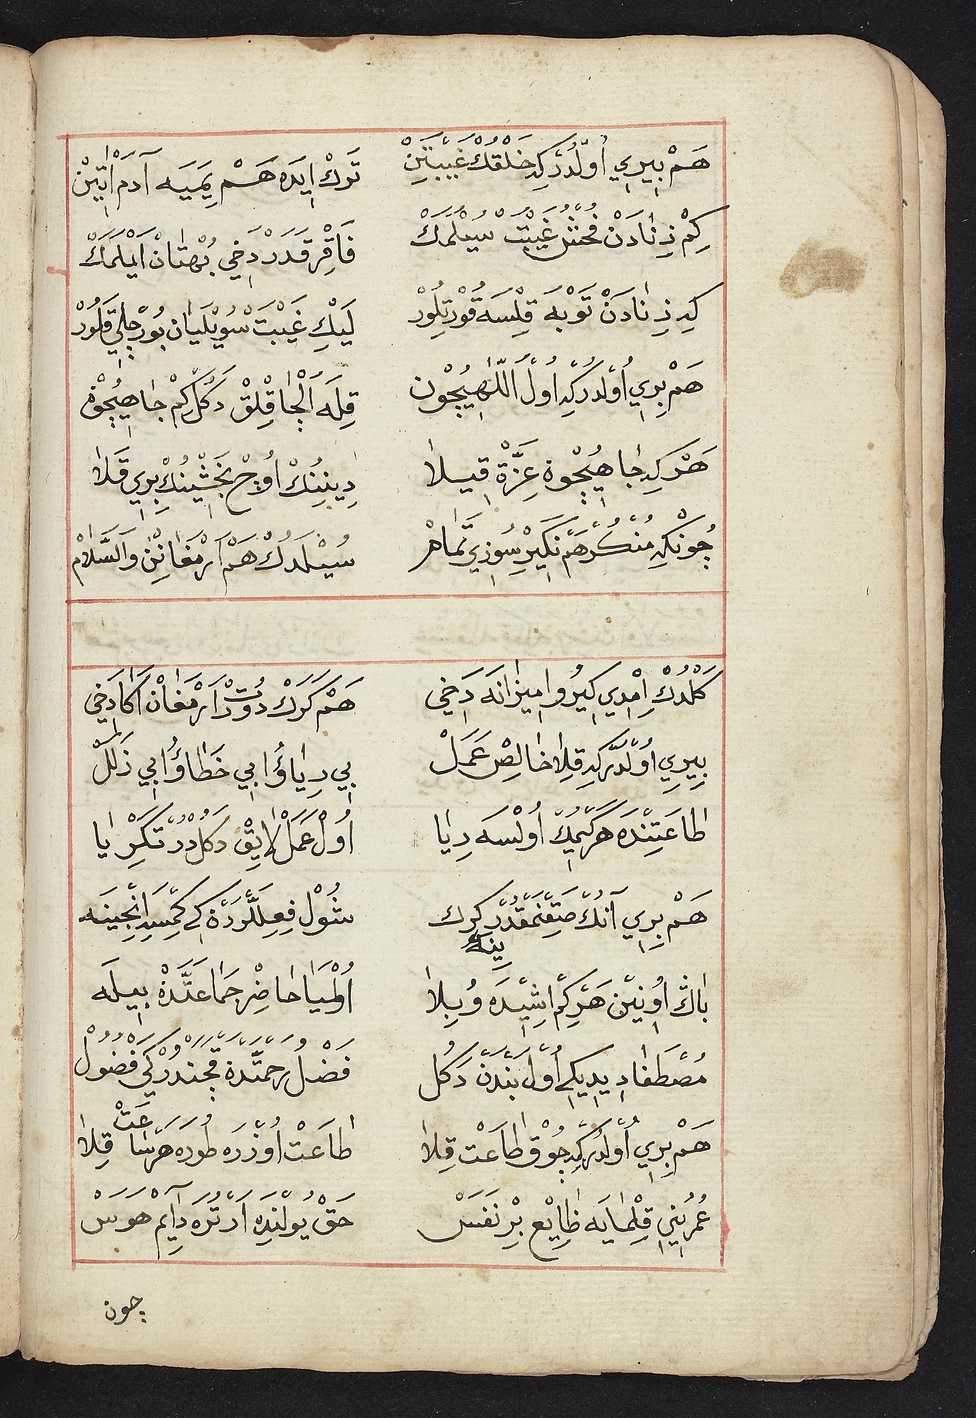 هَمْ بِيرِي اُولْدُرْ كِه خَلْقُكْ غَيْبَتِنْ تَرْكْ اِيدَه هَمْ يِمَيَه آدَمْ اَتِينْ
كِمْ زِنَادَنْ فُحْشْ غَيْبَتْ سُيْلَمَكْ فَاقِرَقْدَرْ دَخِي بُهْتَانْ اَيْلَمَكْ
كِه زِنَادَنْ تَوْبَه قِلْسَه قُورْتِلُورْ لَيْكِ غَيْبَتْ سُويْلَيَانْ بُورْجْلِي قَلُورْ
هَمْ بِرِي اُولْدُرْ كِه اُولْ اَللّٰهِيچُونْ قِلَه اَلْچَاقْلِقْ دَكُلْ كِمْ جَاهِيچُونْ
هَرْ كِه جَاهِيچُونْ عِزَّةْ قِيلَا دِينِنِكْ اُوچْ بَخْشِينُكْ بِرِي قَلَا
چُونْكِه مُنْكَرْ هَمْ نَكِيرِ سُوزِي تَمَامْ سُيْلَدُكْ هَمْ اَرْمَغَانِنْ وَالسَّلَامْ
كَلْدُكْ اِمْدِي كِيرُو مِيزَانَه دَخِي هَمْ كَرَكْ دُورْتْ اَرْمَغَانْ اَكَا دَخِي
بِيرِي اُولْدُرْ كِه قِلَا خَالِصْ عَمَلْ بِي رِيَاؤُ بِي خَطَاؤُ بِي زَلَلْ
طَاعَتِنْدَه هَرْكِمُكْ اُولْسَه رِيَا اُولْ عَمَلْ لَايِقْ دَكُلْدُرْ تَكْرِيَا
هَمْ بِرِي آنُكْ صَقِنْمَقْدُرْ كَرَكْ شُولْ فِعِلْلَرْدَنْ كِه كِمْسَه اِنْجِينَه
يِنَه
بَاكْ اُونِينْ هَرْ كِمْ اِشِيدَه وُبِلَا اُولْمَيَا حَاضِرْ جَمَاعَتْدَه بِيلَه
مُصْطَفَا دِيدِيكِه اُولْ بَنْدَنْ دَكُلْ فَضْلِ رَحْمَتْدَنْ قَچَنْدُرْ كِي فَضُولْ
هَمْ بِرِي اُولْدُرْ كِه چُوقْ طَاعَتْ قِلَا طَاعَتْ اُوزْرَه طُورَه هَرْ سَاعَتْ قِلَا
عُمْرِينِي قِلْمَايَه ضَايِعْ بِرْ نَفَسْ حَقْ يُولِنْدَه اَرْتُرَه دَايِمْ هَوَسْ
چون